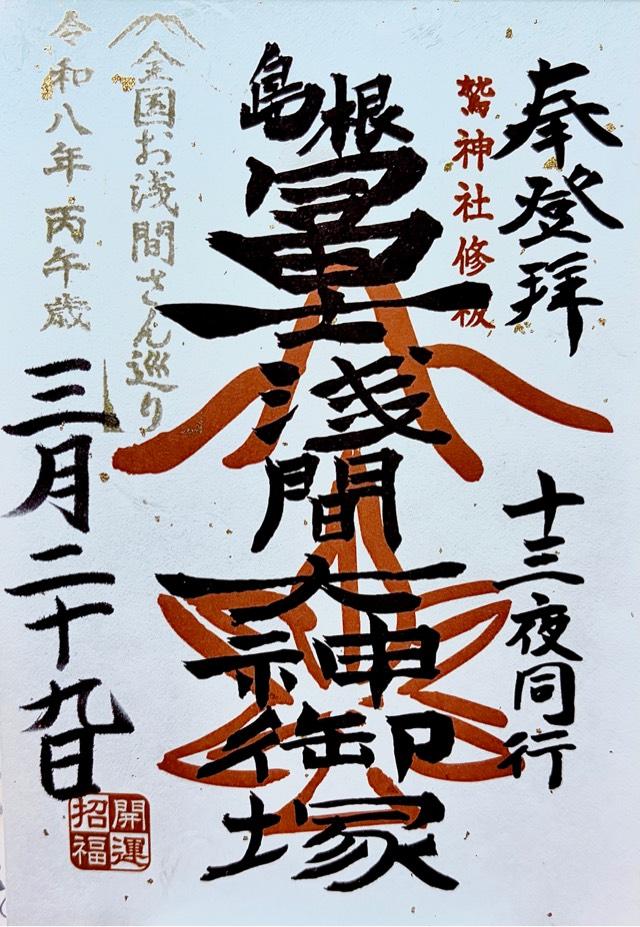 奉登拝
十三夜同行
鷲神社修祓
島根
冨士浅間大神御塚
全国お浅間さん巡り
令和八年丙午歳
三月二十九日
開運
招福